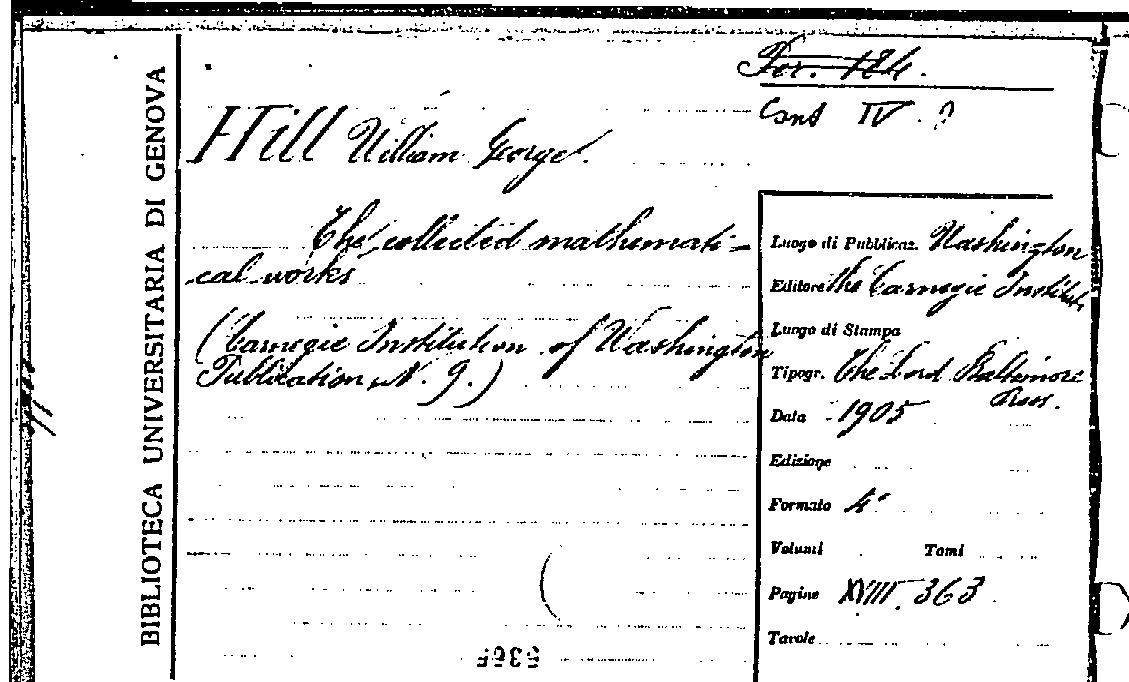 BIBLIOTECA UNIVERSITARIA DI GENOVA
Per. 184.
Cons IV. 9
Hill William George.
The collected mathemati-
cal works
(Carnegie Institution of Washington
Publication, N. 9.)
Luogo di Pubblicaz. Washington
Editore the Carnegie Institute
Luogo di Stampa
Tipogr. The Lord Baltimore
Press.
Data 1905
Edizione
Formato 4°
Volumi Tomi
Pagine XVIII. 363
Tavole